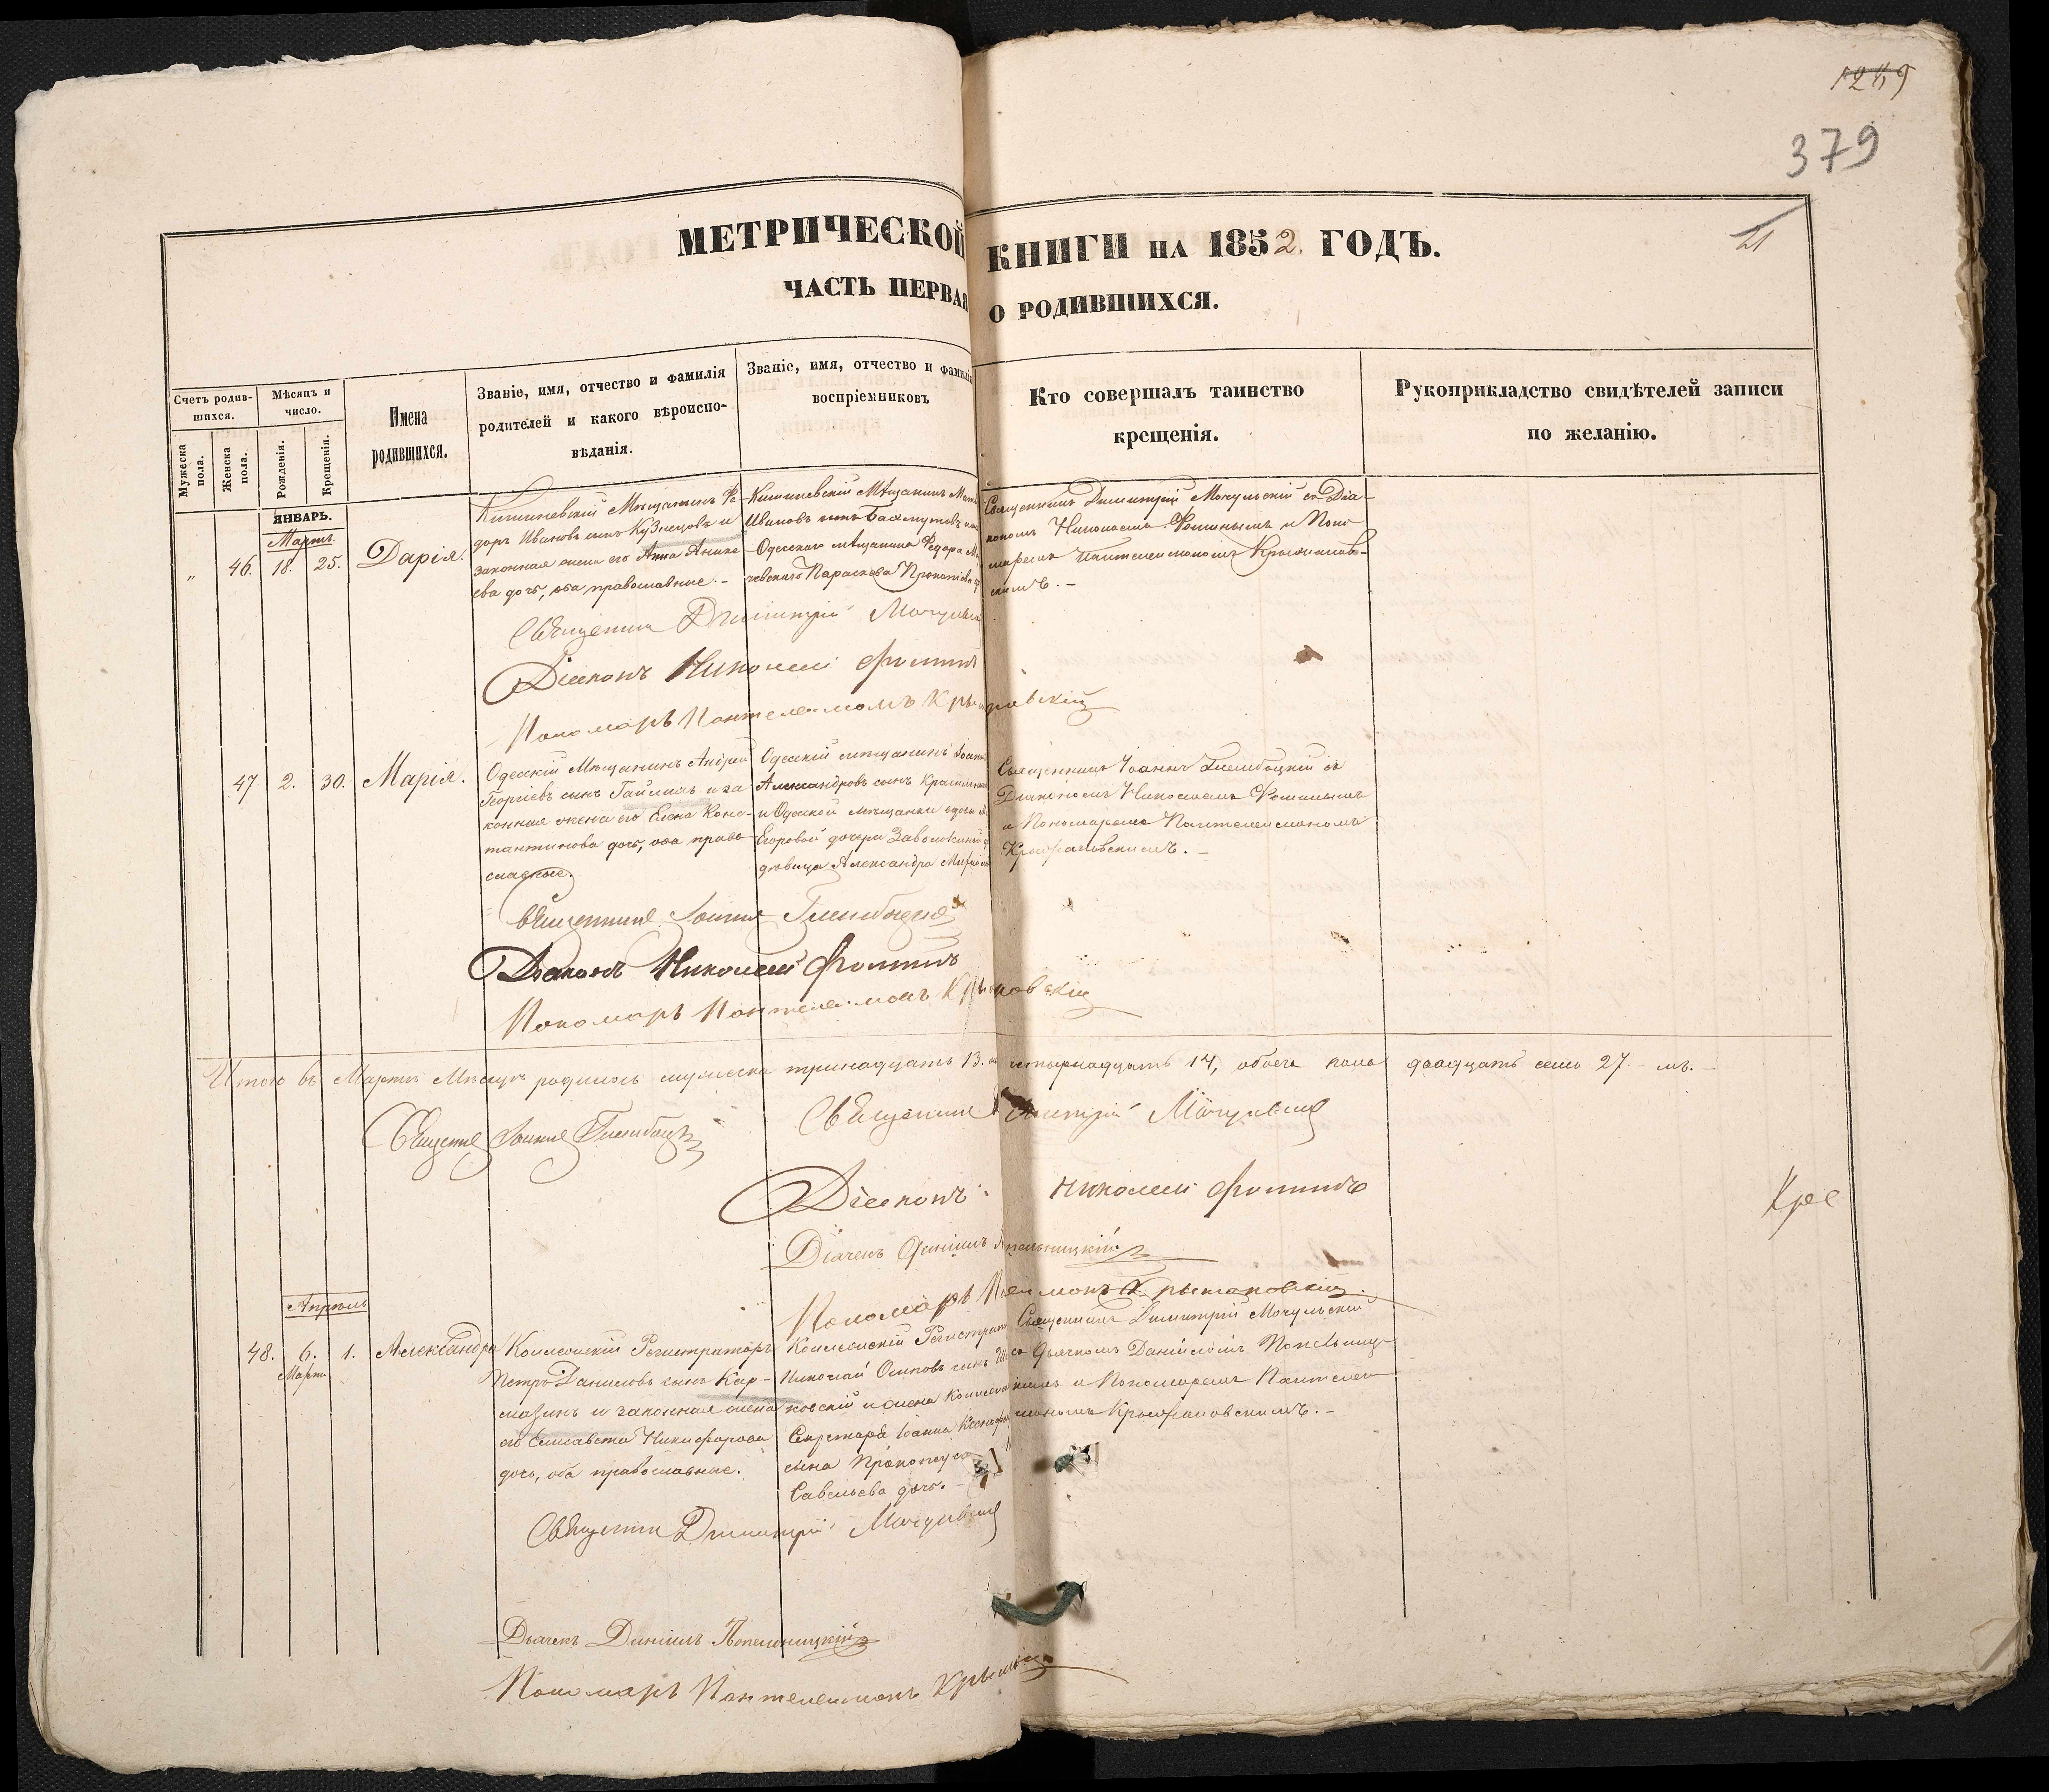 1249
379
МЕТРИЧЕСКОЙ КНИГИ НА 1852. ГОДЪ.
ЧАСТЬ ПЕРВАЯ О РОДИВШИХСЯ.
Счетъ родив-
шихся.
Мужеска
пола.
Женска
пола.
Мѣсяцъ и
число.
Рожденія.
Крещенія.
Имена
родившихся.
Званіе, имя, отчество и фамилія
родителей и какого вѣроиспо-
вѣданія.
Званіе, имя, отчество и фамилія
воспріемниковъ
Кто совершалъ таинство
крещенія.
Рукоприкладство свидѣтелей записи
по желанію.
ЯНВАРЬ.
Мартъ
„ 46. 18. 25. Дарія.
Кишиневскій Мѣщанинъ Ѳе
доръ Ивановъ сынъ Кузнецовъ и
законная жена его Анна Аники
ева дочь, оба православные. –
Кишиневскій Мѣщанинъ
Ивановъ сынъ Бахмутовъ
Одесскаго мѣщанина Ѳедора
Параскева Прокопіева
Священникъ Димитрій Мочульскій съ Діа-
кономъ Николаемъ Фоминымъ и Поно
маремъ Пантелеимономъ Крыжанов-
скимъ. –
Священникъ Димитрій Мочульскій
Діаконъ Николай Фоминъ
Пономарь Пантелеимонъ Крыжановскій
47 2. 30. Марія.
Одесскій Мѣщанинъ Андрей
Георгіевъ сынъ и за
конная жена его Елена Конс-
тантинова дочь, оба право
славные.
Одесскій мѣщанинъ Іоаннъ
Александровъ сынъ
и Одесской мѣщанки вдовы
Егоровой дочери
дѣвица Александра
Священникъ Іоаннъ Глембоцкій съ
Діакономъ Николаемъ Фоминымъ
и Пономаремъ Пантелеимономъ
Крыжановскимъ. –
Священникъ Іоаннъ Глембоцкій
Діаконъ Николай Фоминъ
Пономарь Пантелеимонъ Крыжановскій
Итого въ Мартѣ Мѣсяцѣ родилось мужеска тринадцать 13. четырнадцать 14, обоего пола двадцать семь 27. –
Священникъ Іоаннъ Глембоцкій
Священникъ Димитрій Мочульскій
Діаконъ Николай Фоминъ
Дьячекъ Даніилъ Попельницкій
Пономарь Крыжановскій
Апрѣль
48. 6. 1. Александра
Марта
Коллежскій Регистраторъ
Петръ Даниловъ сынъ Кар-
мазинъ и законная жена
его Елисавета Никифорова
дочь, оба православные.
Коллежскій Регистраторъ
Николай Осиповъ сынъ
и жена
Секретаря Іоанна
сына
Савельева дочь. –
Священникъ Димитрій Мочульскій
съ Дьячкомъ Даніиломъ Попельниц-
кимъ и Пономаремъ Пантелеи
мономъ Крыжановскимъ. –
Священникъ Димитрій Мочульскій
Дьячекъ Даніилъ Попельницкій
Пономарь Пантелеимонъ